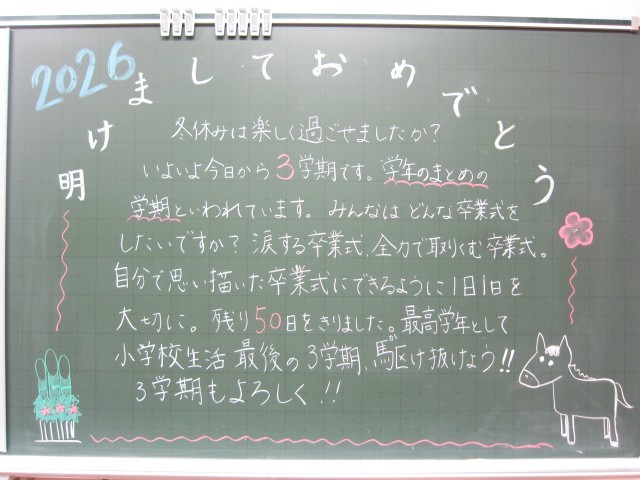 2026
明けましておめでとう
冬休みは楽しく過ごせましたか?
いよいよ今日から3学期です。学年のまとめの
学期といわれています。みんなはどんな卒業式を
したいですか?涙する卒業式、全力で取りくむ卒業式。
自分で思い描いた卒業式にできるように1日1日を
大切に。残り50日をきりました。最高学年として
小学校生活最後の3学期、駆け抜けよう!!
3学期もよろしく!!